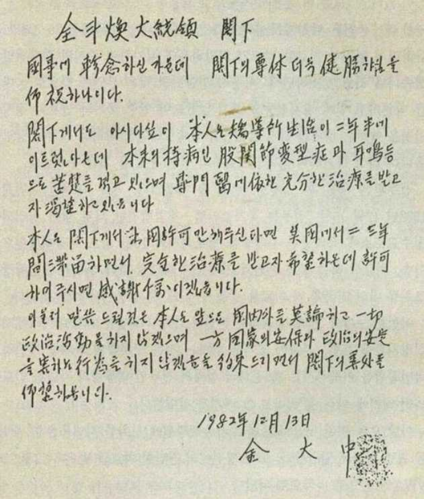 全斗煥 大統領 閣下
國事에 軫念하신 가운데 閣下의 尊体 더욱 健勝하심을
仰祝하나이다.
閣下께서도 아시다싶이 本人은 矯導所生活이 二年半에
이르렀아온데 本来의 持病인 股関節変型症과 耳鳴等
으로 苦楚를 겪고 있으며 専門醫에 依한 充分한 治療를 받고
자 渴望하고 있읍니다
本人은 閣下께서 出國許可만 해주신다면 美國에서 二, 三年
間 滞留하면서 完全한 治療를 받고자 希望하온데 許可
하여 주시면 感謝 이겠읍니다.
아울러 말씀 드릴것은 本人은 앞으로 國内外를 莫論하고 一切
政治活動을 하지 않겠으며 一方 國家의 安保와 政治의 安定
을 害하는 行為를 하지 않겠음을 約束드리면서 閣下의 善処를
仰望하옵니다.
1982年 12月 13日
金 大 中